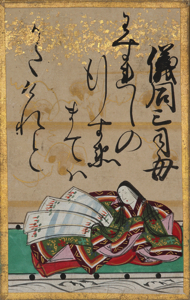 儀同三司母
わすれしの
行すゑ
まては
かたけれは